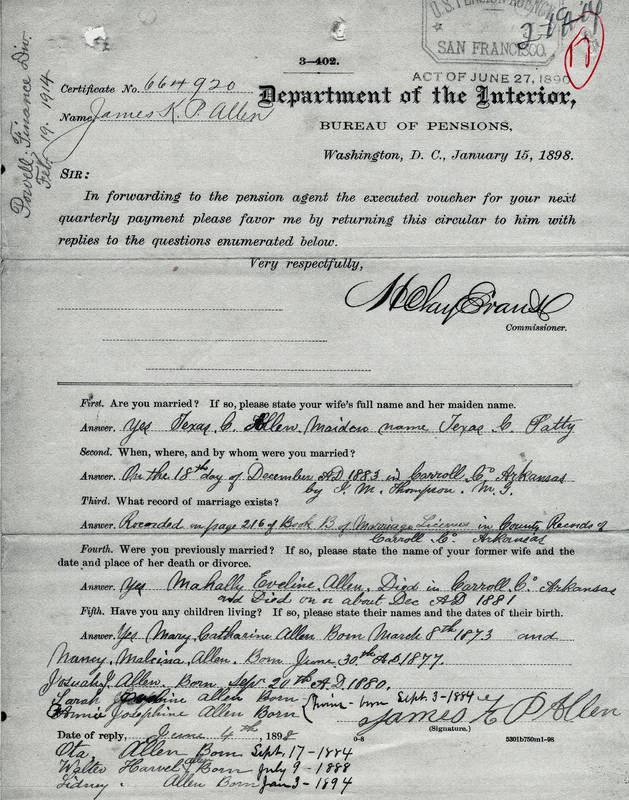 U.S. PENSION AGENCY
SAN FRANCISCO.
17
3—402.
ACT OF JUNE 27, 1890
Powell, Finance Div.
Feb. 19. 1914
Certificate No. 664920
Department of the Interior,
Name, James K. P. Allen
BUREAU OF PENSIONS,
Washington, D. C., January 15, 1898.
SIR:
In forwarding to the pension agent the executed voucher for your next
quarterly payment please favor me by returning this circular to him with
replies to the questions enumerated below.
Very respectfully,
H Clay Evans
Commissioner.
First. Are you married? If so, please state your wife's full name and her maiden name.
Answer. Yes Texas C. Allen, Maiden name Texas C. Patty
Second. When, where, and by whom were you married?
Answer. On the 18th day of December A.D. 1883 in Carroll Co. Arkansas
by J. M. Thompson. M. G.
Third. What record of marriage exists?
Answer. Recorded on page 216 of Book B of Marriage Licenses in County Records of
Carroll Co. Arkansas
Fourth. Were you previously married? If so, please state the name of your former wife and the
date and place of her death or divorce.
Answer. Yes Mahally Eveline Allen. Died in Carroll Co. Arkansas
and Died on or about Dec A.D 1881
Fifth. Have you any children living? If so, please state their names and the dates of their birth.
Answer. Yes Mary Catharine Allen Born March 8th 1873 and
Nancy Malcina Allen. Born June 30th A.D. 1877.
Josuah J Allen. Born Sept 20th A.D. 1880.
Sarah Allen Born
Josephine Allen Born } Twins - born Sept. 3-1884
James K P Allen
(Signature.)
Date of reply, June 4th, 1898
0-8
5301b750m1-98
Ota Allen Born Sept. 17-1884
Walter Harvel Allen Born July 9-1888
Sidney Allen Born Jan 3-1894